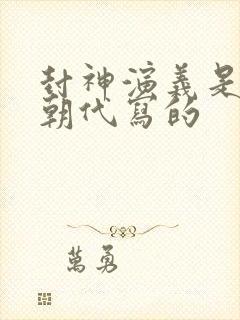 封神演義是
朝代寫的
萬勇